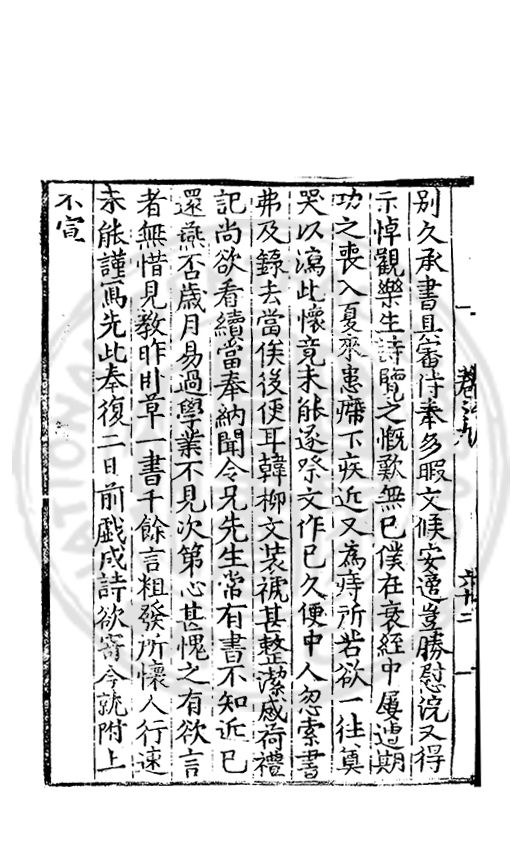 別久承書具審侍奉多暇文候安逸豈勝慰浣又得
示悼觀樂生詩覽之慨歎無已僕在衰絰中屢遭期
功之喪入夏來患㾮下疾近又為痔所苦欲一往奠
哭以瀉此懷竟未能遂祭文作已久便中人忽索書
弗及錄去當俟後便耳韓柳文装褫甚整潔感荷禮
記尚欲看續當奉納聞令兄先生常有書不知近已
還燕否歲月易過學業不見次第心甚愧之有欲言
者無惜見教昨財草一書千餘言粗發所懷人行速
未能謹寫先此奉復二日前戯成詩欲寄今就附上
不宣
卷之九
六十二